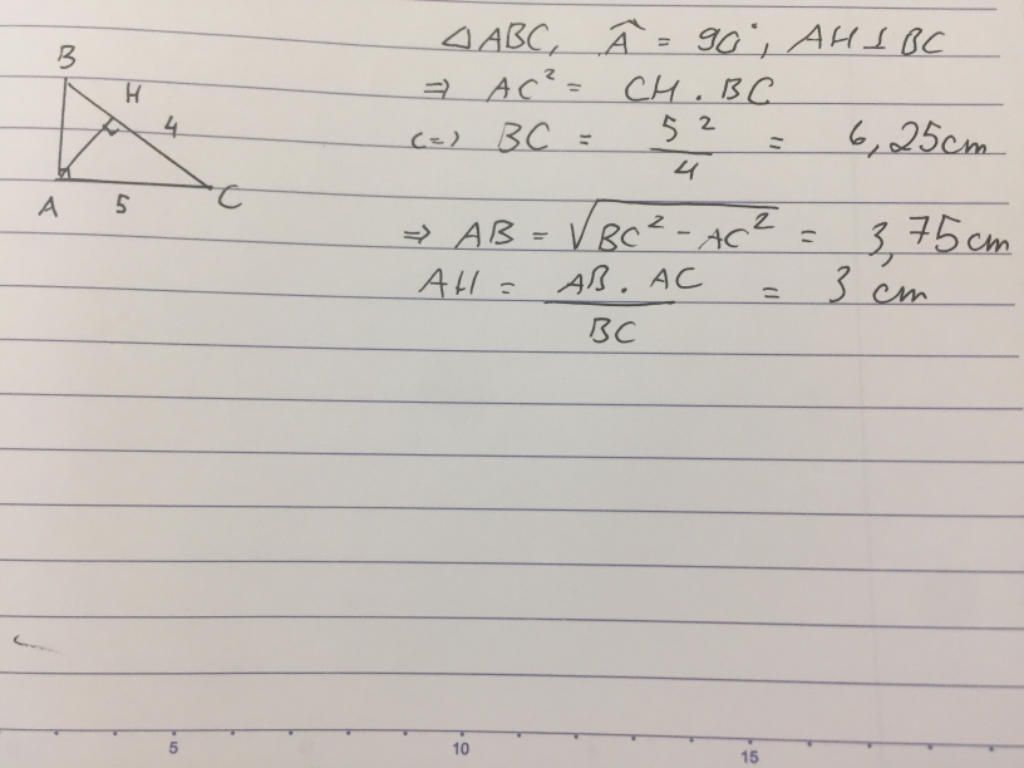 B
H
4
A 5 C
△ABC, Â = 90°, AH ⊥ BC
⇒ AC² = CH . BC
(=) BC = 5² / 4 = 6,25cm
⇒ AB = √(BC² - AC²) = 3,75cm
AH = AB . AC / BC = 3 cm
5 10 15